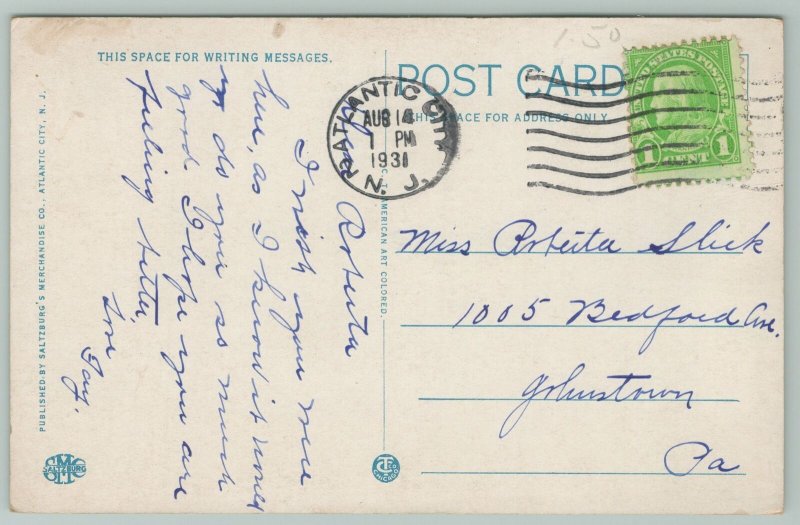 1.50
THIS SPACE FOR WRITING MESSAGES.
POST CARD
THIS SPACE FOR ADDRESS ONLY.
ATLANTIC CITY
AUG 14
1 PM
1931
N. J.
UNITED STATES POSTAGE
1 CENT 1
Dear Roberta
I wish you were
here, as I know it would
do you so much
good. I hope you are
feeling better,
Love
Fay.
Miss Roberta Slick
1005 Bedford Ave.
Johnstown
Pa
PUBLISHED BY SALTZBURG'S MERCHANDISE CO., ATLANTIC CITY, N. J.
C. T. AMERICAN ART COLORED
SALTZBURG
CHICAGO